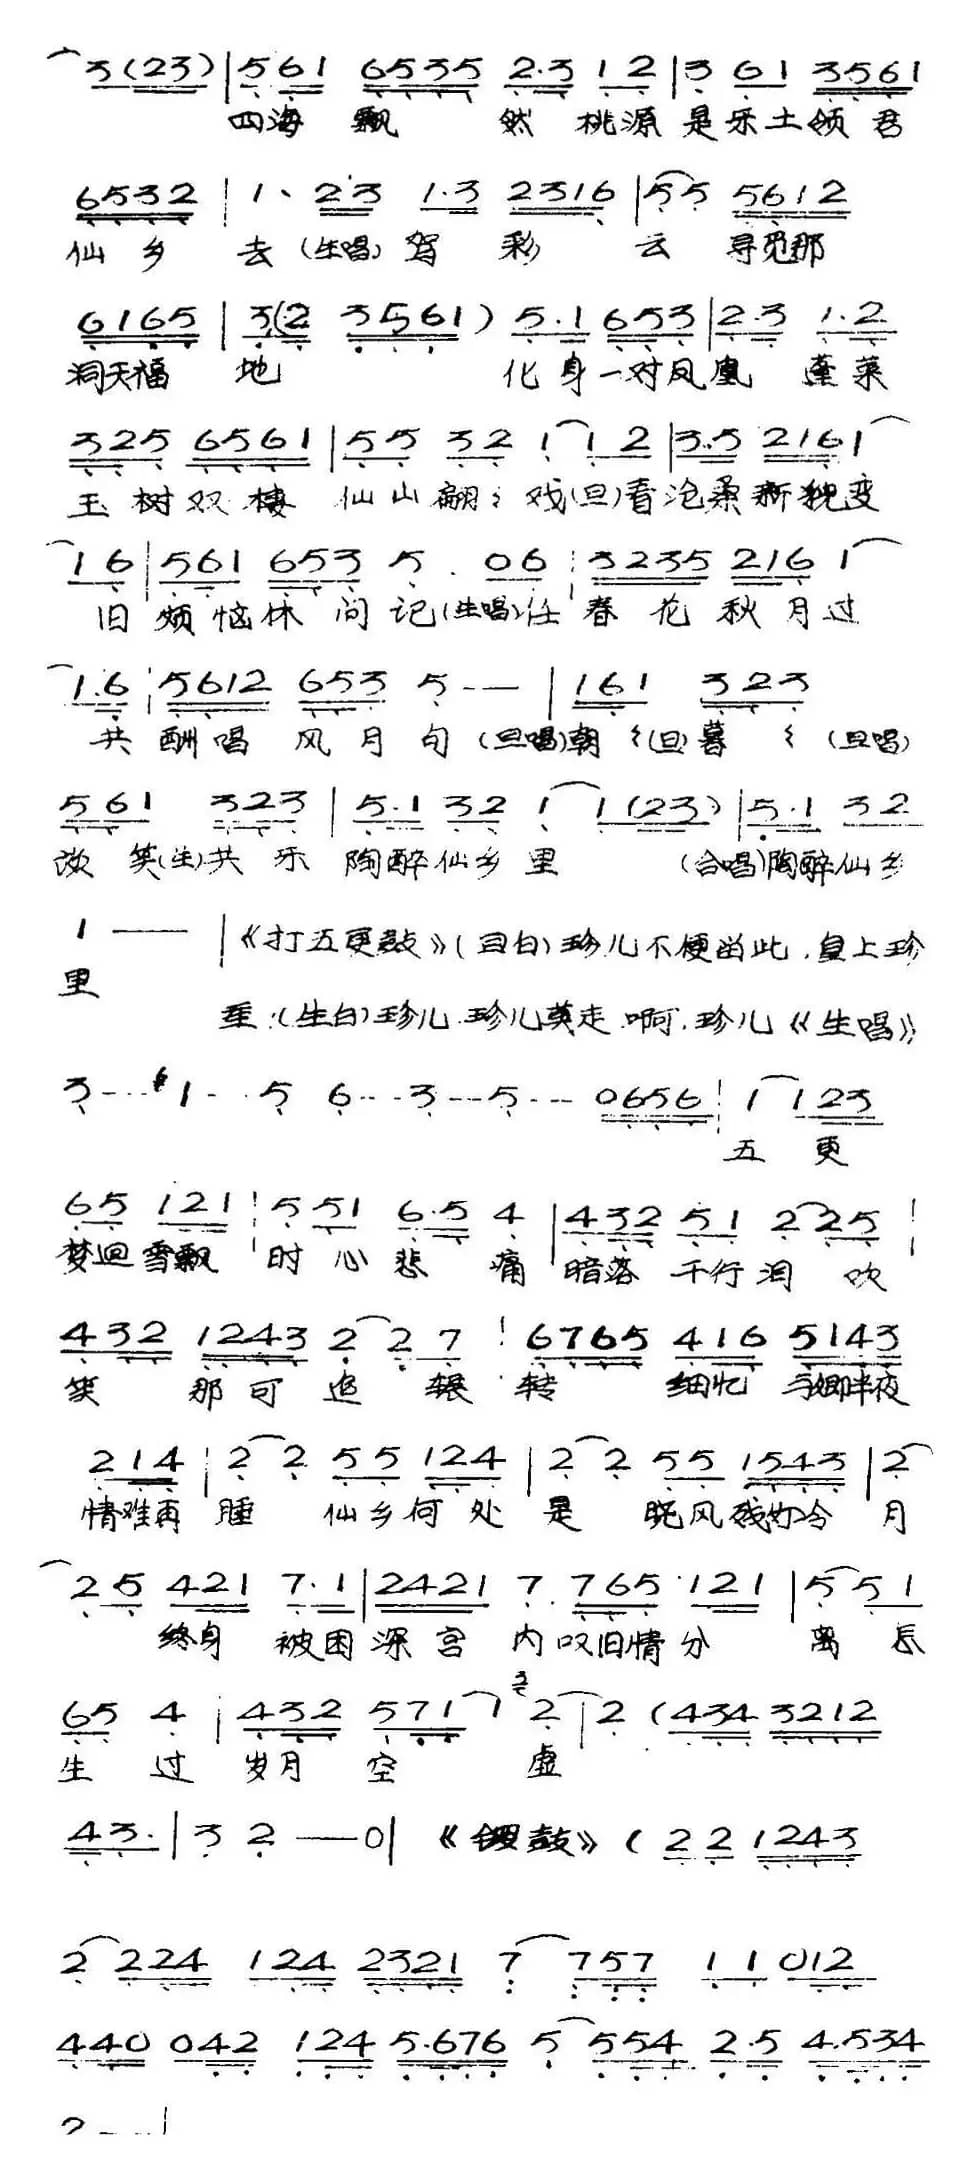 3(23) | 561 6535 2·3 12 | 3 61 3561
四海 飘 然 桃源 是乐土领君
6532 | 1、23 1·3 2316 | 55 5612
仙乡 去(生唱)驾 彩 云 寻觅那
6165 | 3(2 3561) 5·1 653 | 2·3 1·2
洞天福 地 化身一对凤凰 蓬莱
325 6561 | 55 32 1 12 | 3·5 2161
玉树双棲 仙山翩〻戏(旦)看沧桑新貌变
16 | 561 653 5· 06 | 3235 216 1
旧烦恼休问记(生唱)任春花秋月过
1·6 | 5612 653 5-- | 161 323
共酬唱风月句(旦唱)朝〻(旦)暮〻(旦唱)
561 323 | 5·1 32 1 1(23) | 5·1 32
欢笑(生)共乐陶醉仙乡里 (合唱)陶醉仙乡
1 —— | 《打五更鼓》(旦白)珍儿不便留此,皇上珍
里
重·(生白)珍儿·珍儿莫走·啊,珍儿《生唱》
3--- 1--- 5 6---3---5--- 0656 | 1 123
五更
65 121 | 5 51 6·5 4 | 432 51 2 25
梦迴雪飘 时心悲痛 暗落千行泪 欢
432 1243 2 27 | 6765 416 5143
笑 那可追 辗转 细忆 与卿半夜
214 | 2 2 55 124 | 2 2 55 1543 | 2
情难再 睡 仙乡何处是 晓风残 冷月
25 421 7·1 | 2421 7·765·121 | 5 51
终身 被困深宫 内叹旧情分 离长
65 4 | 432 571 1 3 2 | 2 (434 3212
生过 岁月空 虚
43· | 3 2 ——0 | 《锣鼓》( 22 1243
2 224 124 2321 7 757 11 012
440 042 124 5·676 5 554 2·5 4·534
2--|